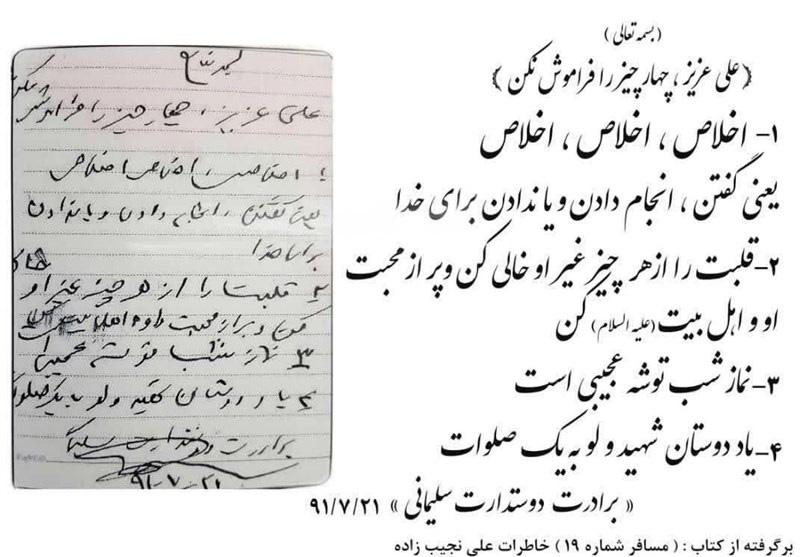 (بسمه تعالی)
«علی عزیز، چهار چیز را فراموش نکن»
۱- اخلاص، اخلاص، اخلاص
یعنی گفتن، انجام دادن و یا ندادن برای خدا
۲- قلبت را از هر چیز غیر او خالی کن و پر از محبت
او و اهل بیت (علیه السلام) کن
۳- نماز شب توشه عجیبی است
۴- یاد دوستان شهید و لو به یک صلوات
« برادرت دوستدارت سلیمانی » ۹۱/۷/۲۱
برگرفته از کتاب : ( مسافر شماره ۱۹ ) خاطرات علی نجیب زاده
بسمه تعالی
علی عزیز، چهار چیز را فراموش نکن
۱ اخلاص، اخلاص اخلاص
یعنی گفتن، انجام دادن و یا ندادن
برای خدا
۲ قلبت را از هر چیز غیر او
کن و پر از محبت او و اهل بیت کن
۳ نماز شب توشه عجیبی
۴ یاد دوستان شهید ولو به یک صلوات
برادرت دوستدارت سلیمانی
۹۱-۷-۲۱